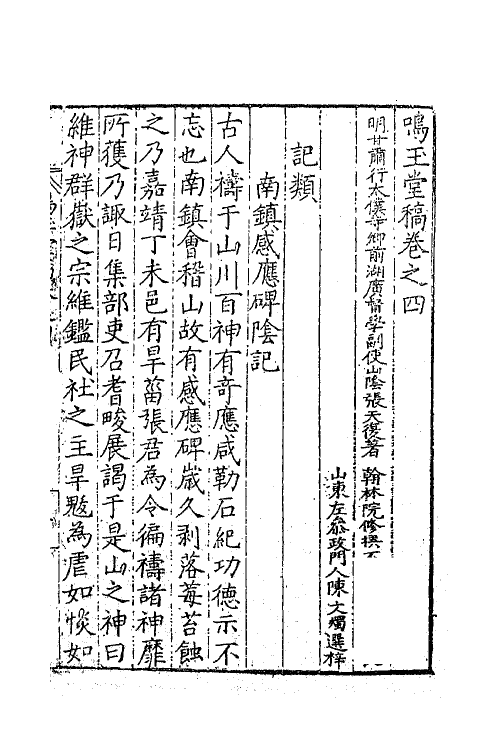 鳴玉堂稿卷之四
明甘肅行太僕寺卿前湖廣督學副使山陰張天復著 翰林院修撰
山東左叅政門人陳文燭選梓
記類
南鎮感應碑陰記
古人禱于山川百神有奇應咸勒石紀功德示不
忘也南鎮會稽山故有感應碑嵗久剥落莓苔蝕
之乃嘉靖丁未邑有旱菑張君為令徧禱諸神靡
所獲乃諏日集部吏召耆畯展謁于是山之神曰
維神群嶽之宗維鑑民社之主旱魃為虐如惔如